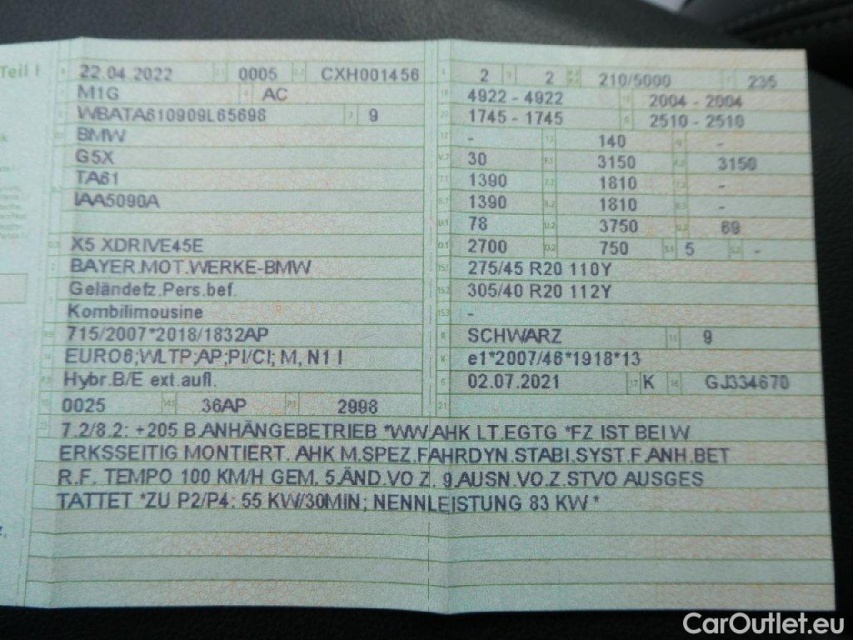 Teil I
22.04.2022 0005 CXH001456
M1G AC
WBATA610909L65698 9
BMW
G5X
TA61
IAA5090A
X5 XDRIVE45E
BAYER.MOT.WERKE-BMW
Geländefz.Pers.bef.
Kombilimousine
715/2007*2018/1832AP
EURO6;WLTP;AP;PI/CI; M, N1 I
Hybr.B/E ext.aufl.
0025 36AP 2998
2 2 210/5000 235
4922 - 4922 2004 - 2004
1745 - 1745 2510 - 2510
- 140 -
30 3150 3150
1390 1810 -
1390 1810 -
78 3750 69
2700 750 5 -
275/45 R20 110Y
305/40 R20 112Y
-
SCHWARZ 9
e1*2007/46*1918*13
02.07.2021 K GJ334670
7.2/8.2: +205 B.ANHÄNGEBETRIEB *WW.AHK LT.EGTG *FZ IST BEI W
ERKSSEITIG MONTIERT. AHK M.SPEZ.FAHRDYN.STABI.SYST.F.ANH.BET
R.F. TEMPO 100 KM/H GEM. 5.ÄND.VO Z. 9.AUSN.VO.Z.STVO AUSGES
TATTET *ZU P2/P4: 55 KW/30MIN; NENNLEISTUNG 83 KW *
CarOutlet.eu